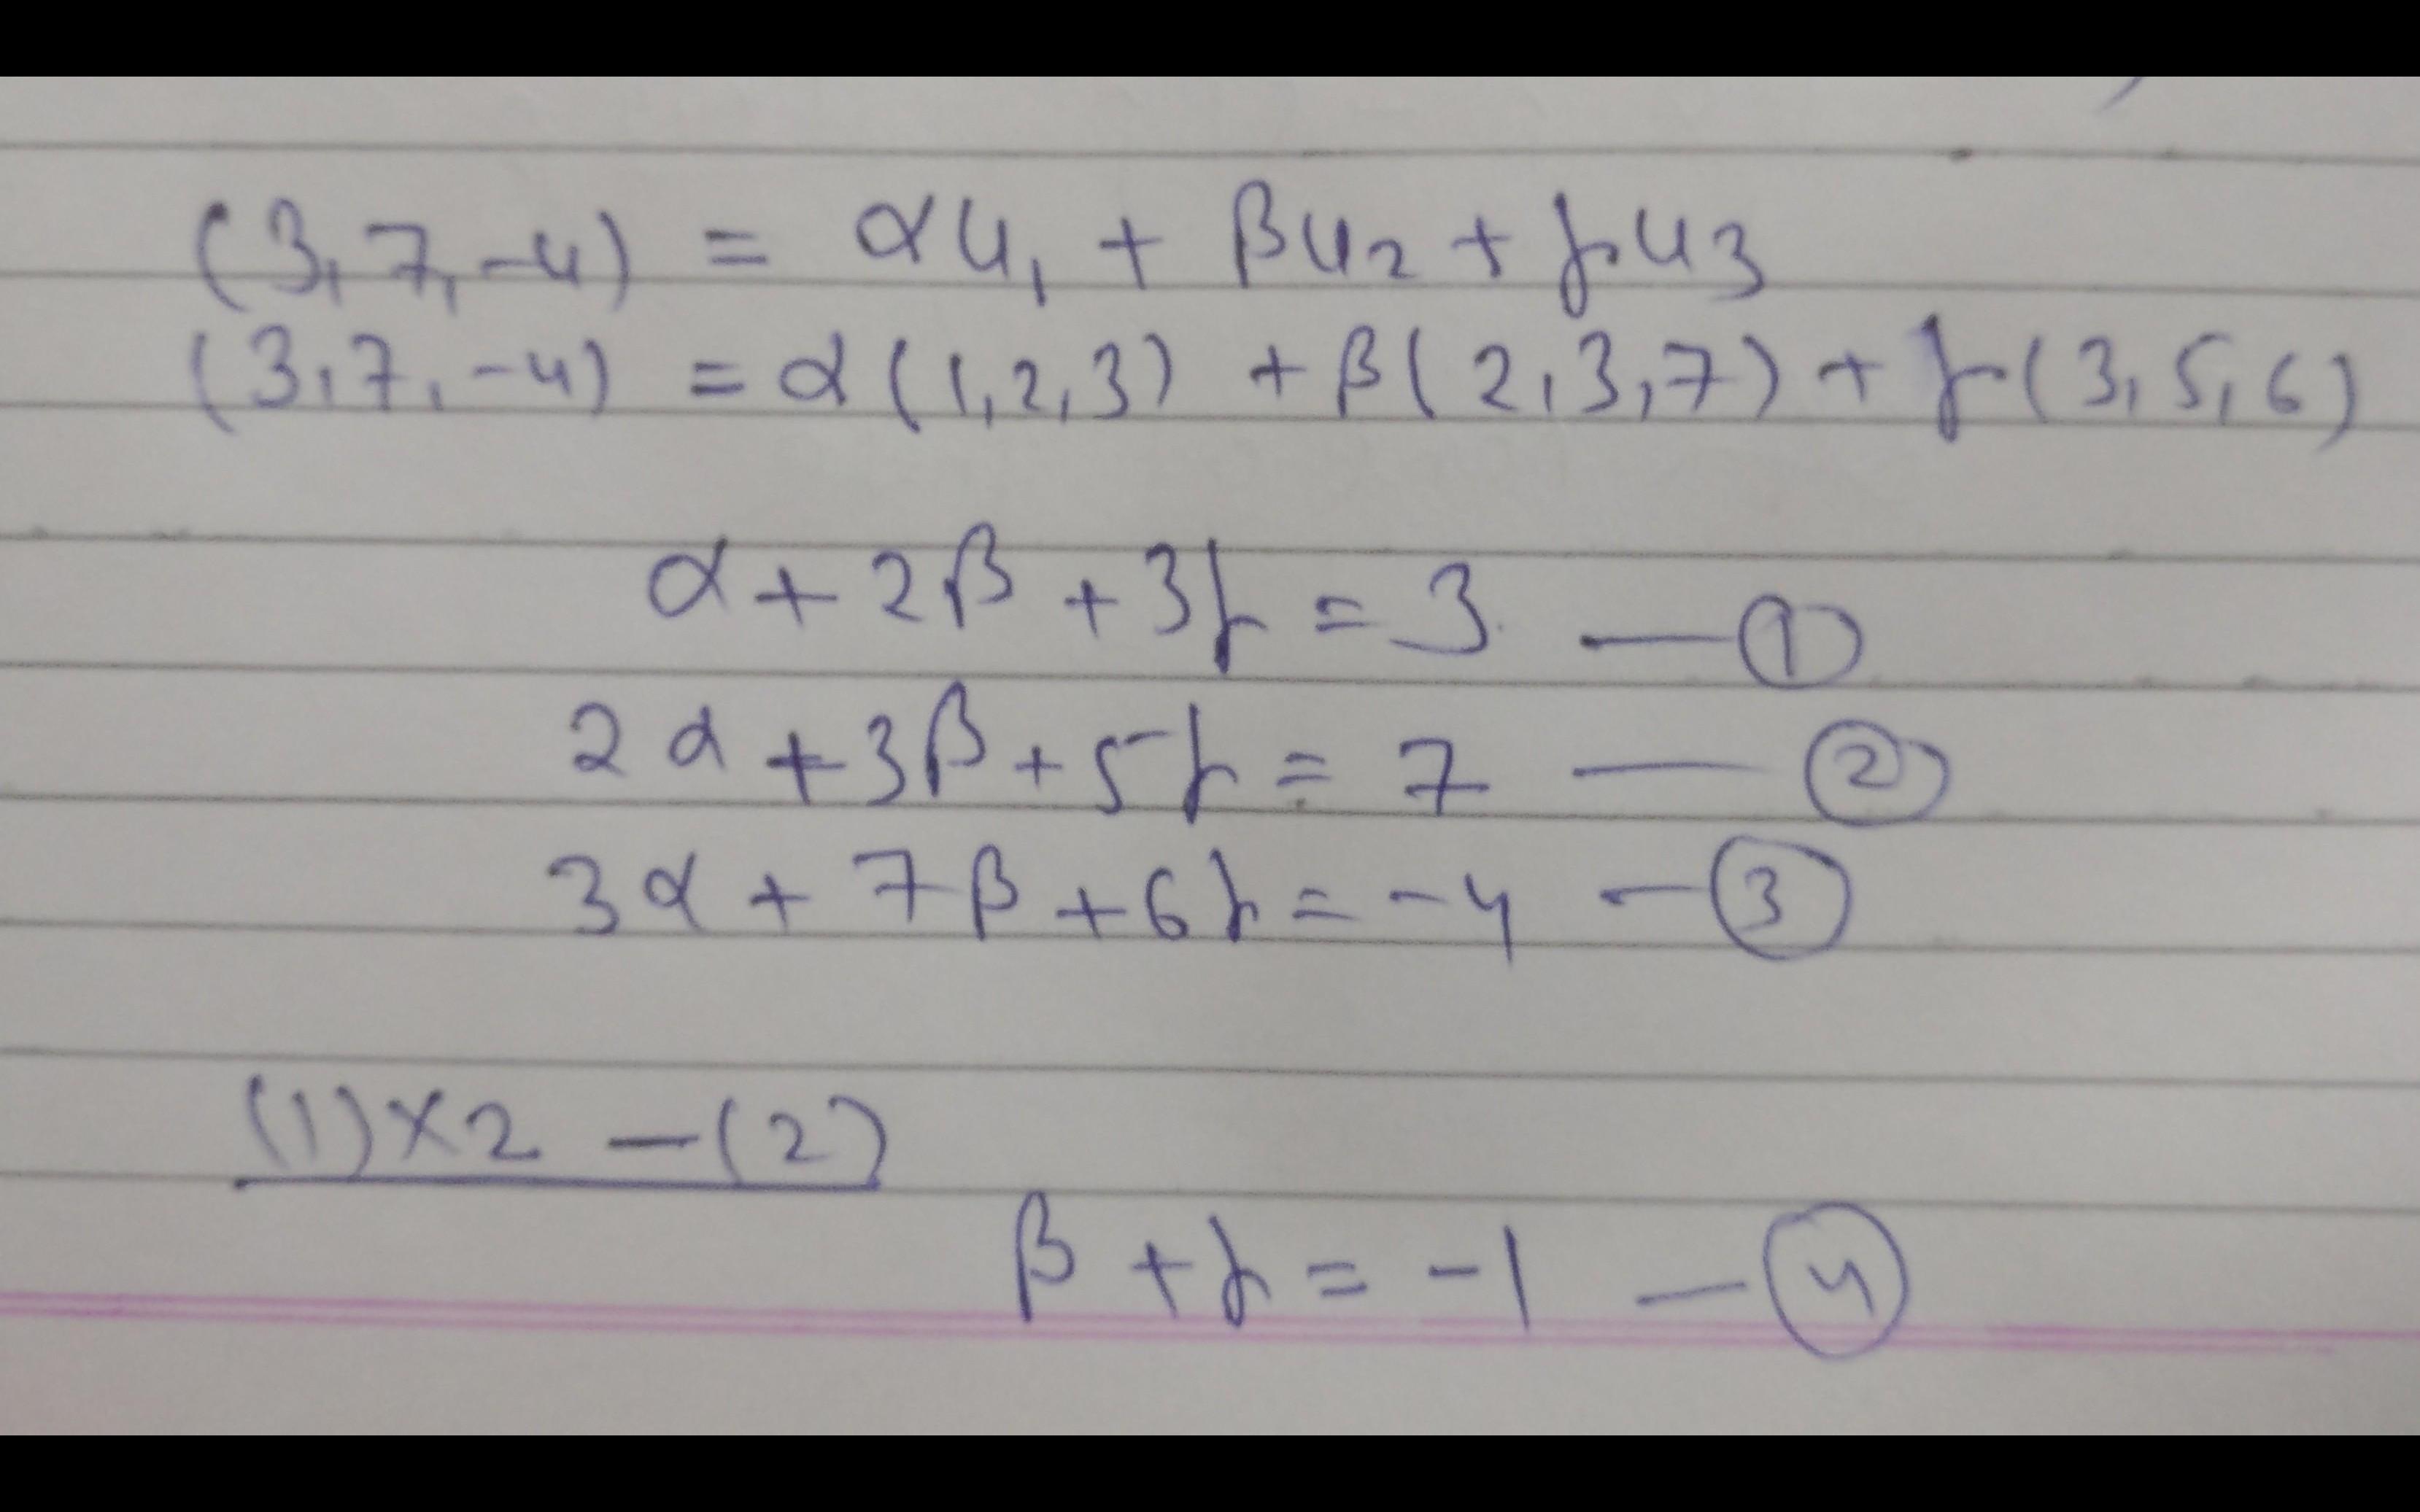 (3, 7, -4) = αu₁ + βu₂ + γu₃
(3, 7, -4) = α(1, 2, 3) + β(2, 3, 7) + γ(3, 5, 6)
α + 2β + 3γ = 3 — ①
2α + 3β + 5γ = 7 — ②
3α + 7β + 6γ = -4 — ③
(1)×2 — (2)
β + γ = -1 — ④